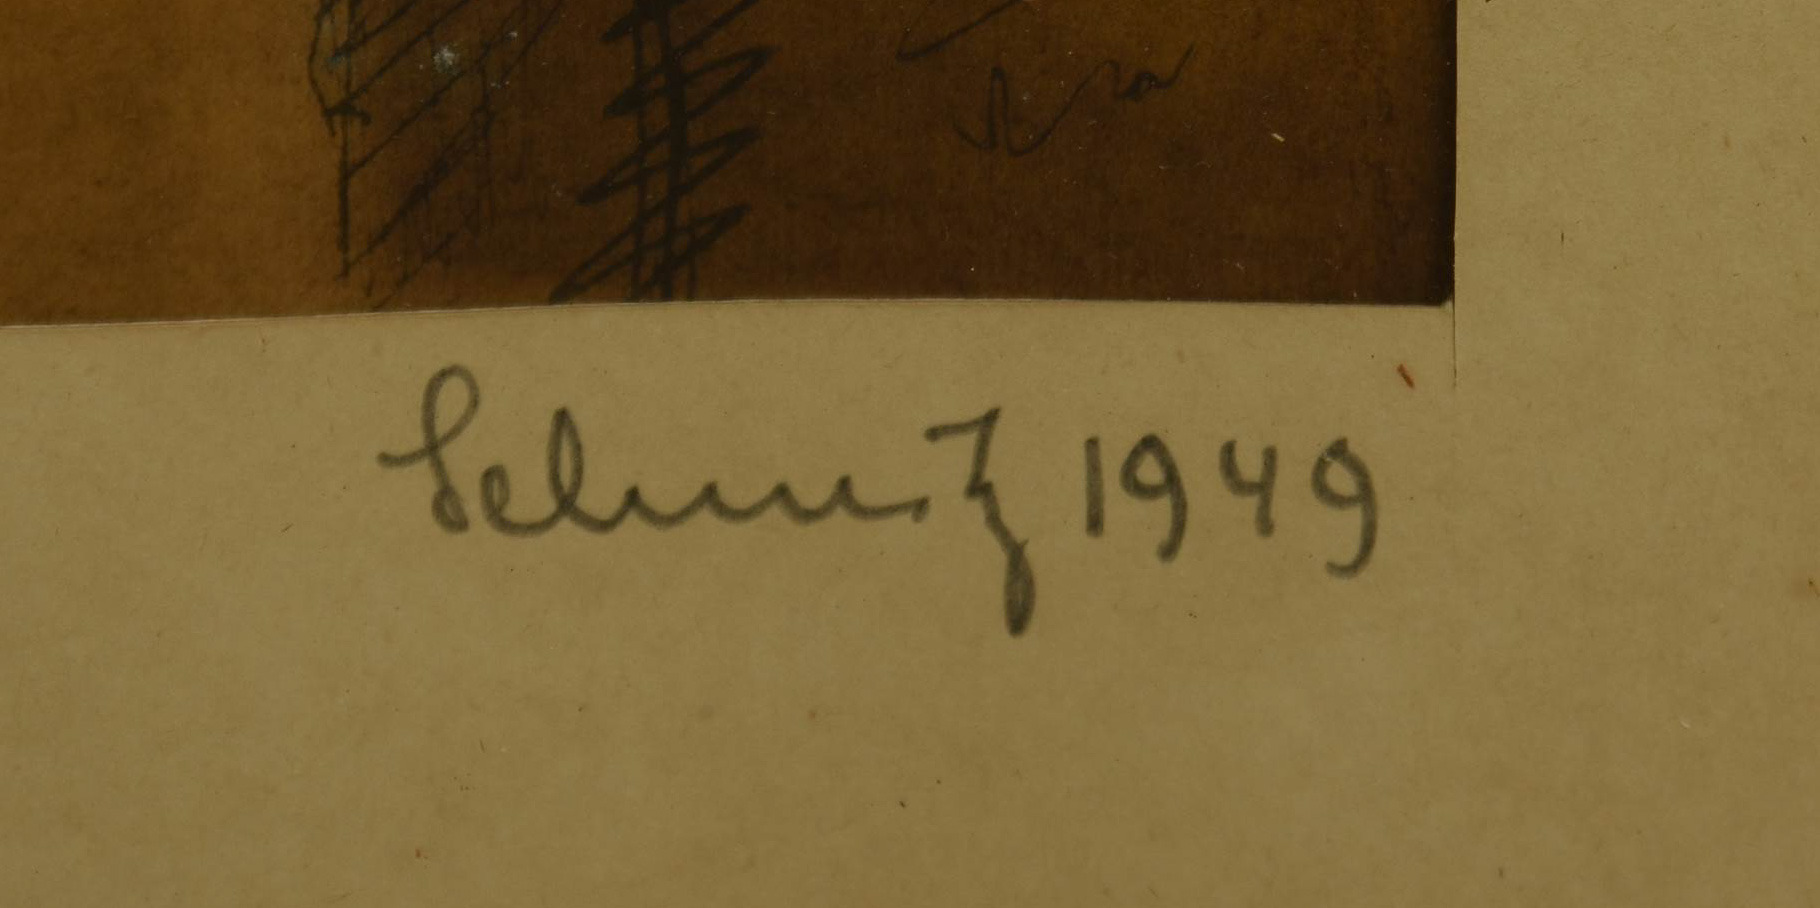 Schmitz 1949